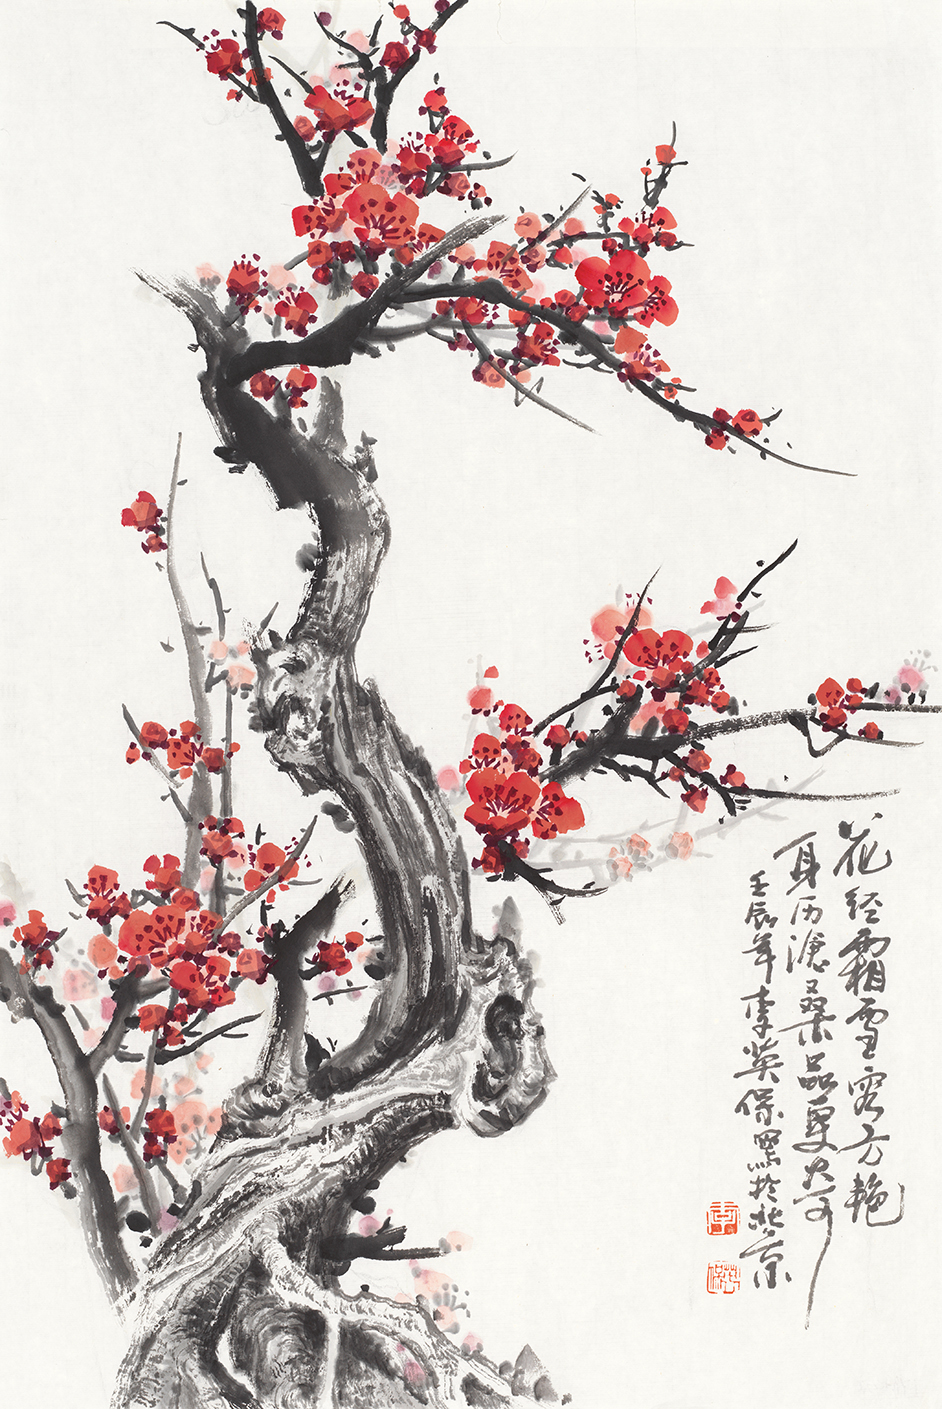 花经霜雪容方艳
身历沧桑品更奇
壬辰年李英保写于北京
李
英保